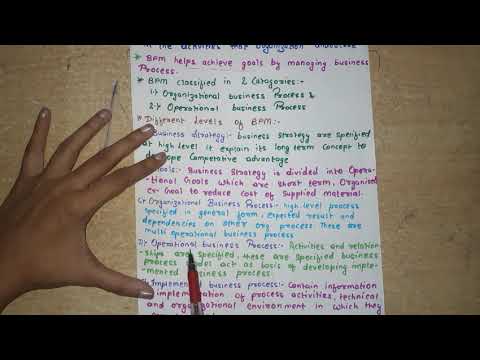 in the activities that organization
* BPM helps achieve goals by managing business
Process.
* BPM classified in 2 Catagories:-
1.} Organizational business Process &
2.} Operational business Process
* Different Levels of BPM:-
Business strategy:- business strategy are specified
at high level it explain its long term Concept to
develope Competative advantage
Goals:- Business Strategy is divided into Opera-
-tional Goals which are short term, Organised
Goal to reduce cost of Supplied material.
C) Organizational Business Process:- high-level process
specified in general form, expected result and
dependencies on other org. process These are
multi operational business process
D) Operational business Process:- Activities and relation
-ships are specified, these are specified business
process act as basis of developing imple-
-mented business process
Implement business process:- Contain information
implementation of process activities, technical
and organizational environment in which they